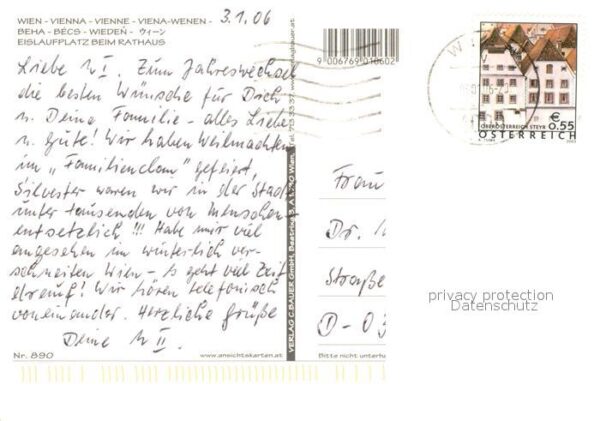 WIEN - VIENNA - VIENNE - VIENA-WENEN -
BEHA - BÉCS - WIEDEŃ - ウィーン
EISLAUFPLATZ BEIM RATHAUS
3.1.06
Liebe N I, Zum Jahreswechsel
die besten Wünsche für Dich
u. Deine Familie - alles Liebe
u. Gute! Wir haben Weihnachten
im „Familienclan" gefeiert,
Silvester waren wir in der Stadt
unter tausenden von Menschen -
entsetzlich !!! Habe mir viel
angesehen im winterlich ver-
schneiten Wien - es geht viel Zeit
drauf! Wir hören telefonisch
voneinander. Herzliche Grüße
Deine N II.
Nr. 890
www.ansichtskarten.at
VERLAG C. BAUER GmbH
9 006769 010602
€ 0.55
OBERÖSTERREICH STEYR
ÖSTERREICH
Frau
Dr.
Straße
D-03
Bitte nicht unterha
privacy protection
Datenschutz